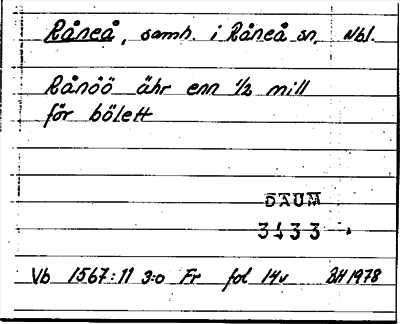 Råneå, samh. i Råneå sn. Nbl.
Rånöö ähr enn 1/2 mill
för bölett
DAUM
3433
Vb 1567:11 3:o Fr fol 14v BH 1978